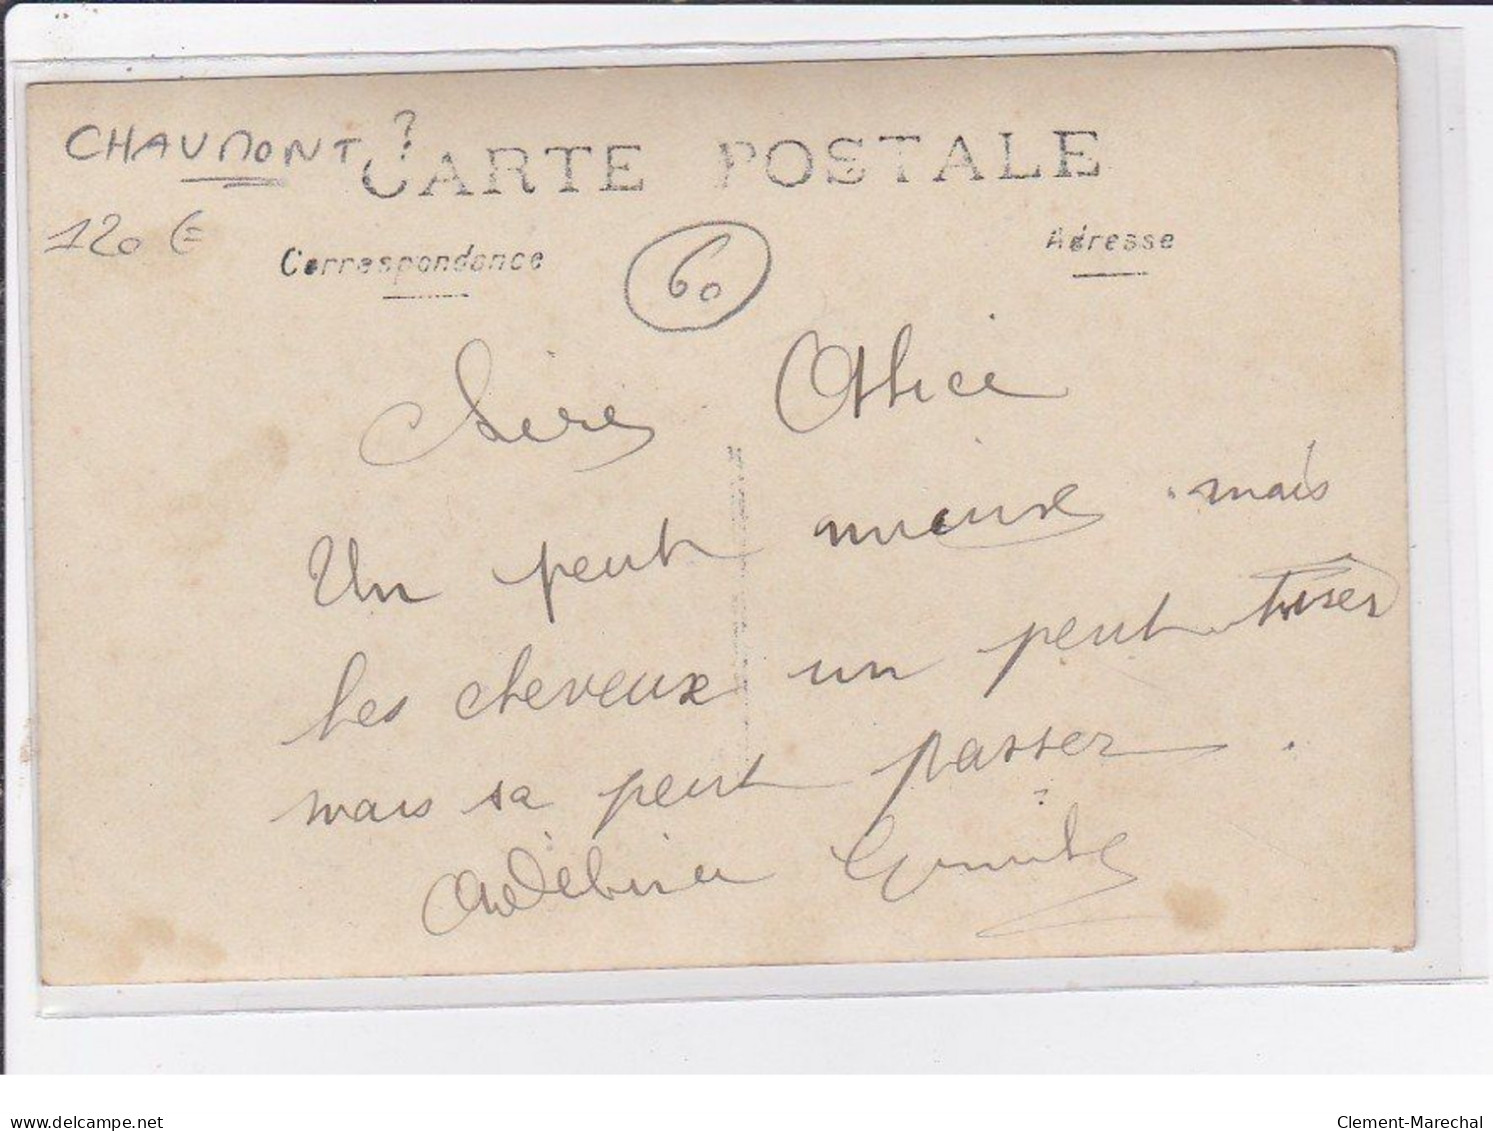 CHAUMONT ?
CARTE POSTALE
120 €
Correspondance
60
Adresse
Chère Allice
Un peut mieux mais
les cheveux un peut
mais sa peut passer.
delcampe.net
Clement-Marechal